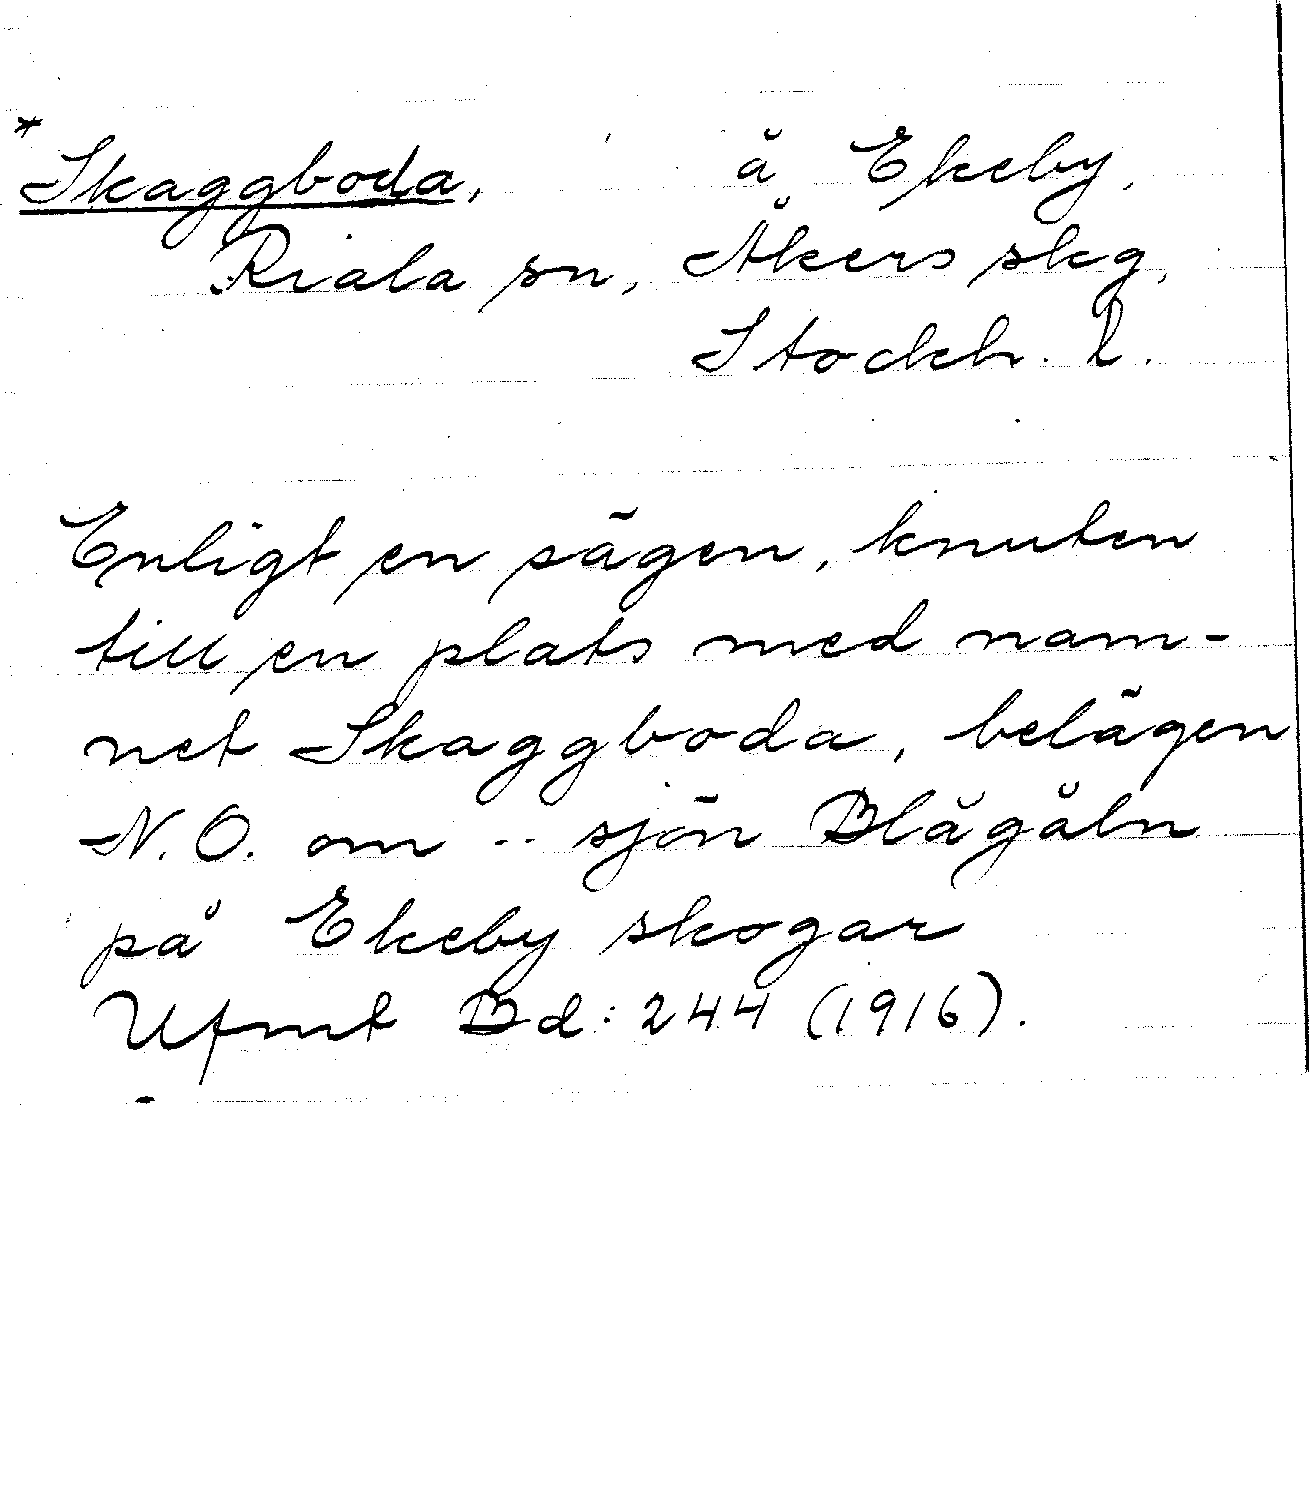 *Skaggboda, å Ekeby,
Riala sn, Åkers skg,
Stockh. l.
Enligt en sägen, knuten
till en plats med nam-
net Skaggboda, belägen
N.O. om -- sjön Blågåln
på Ekeby skogar
Ufmt Bd: 244 (1916).